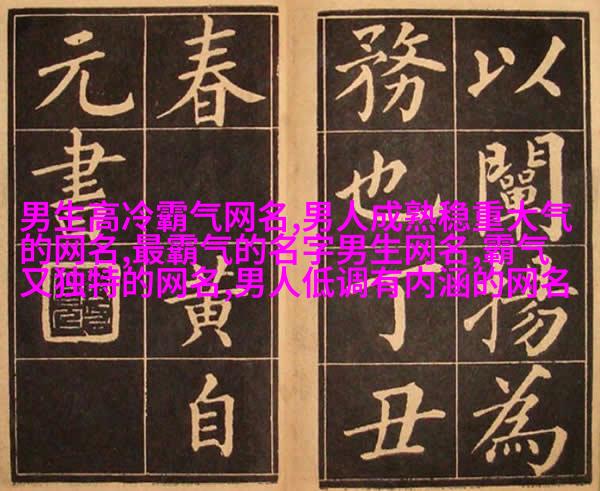 以闡揚為
務也丁丑
春黃自
元書
男生高冷霸气网名,男人成熟稳重大气
的网名,最霸气的名字男生网名,霸气
又独特的网名,男人低调有内涵的网名